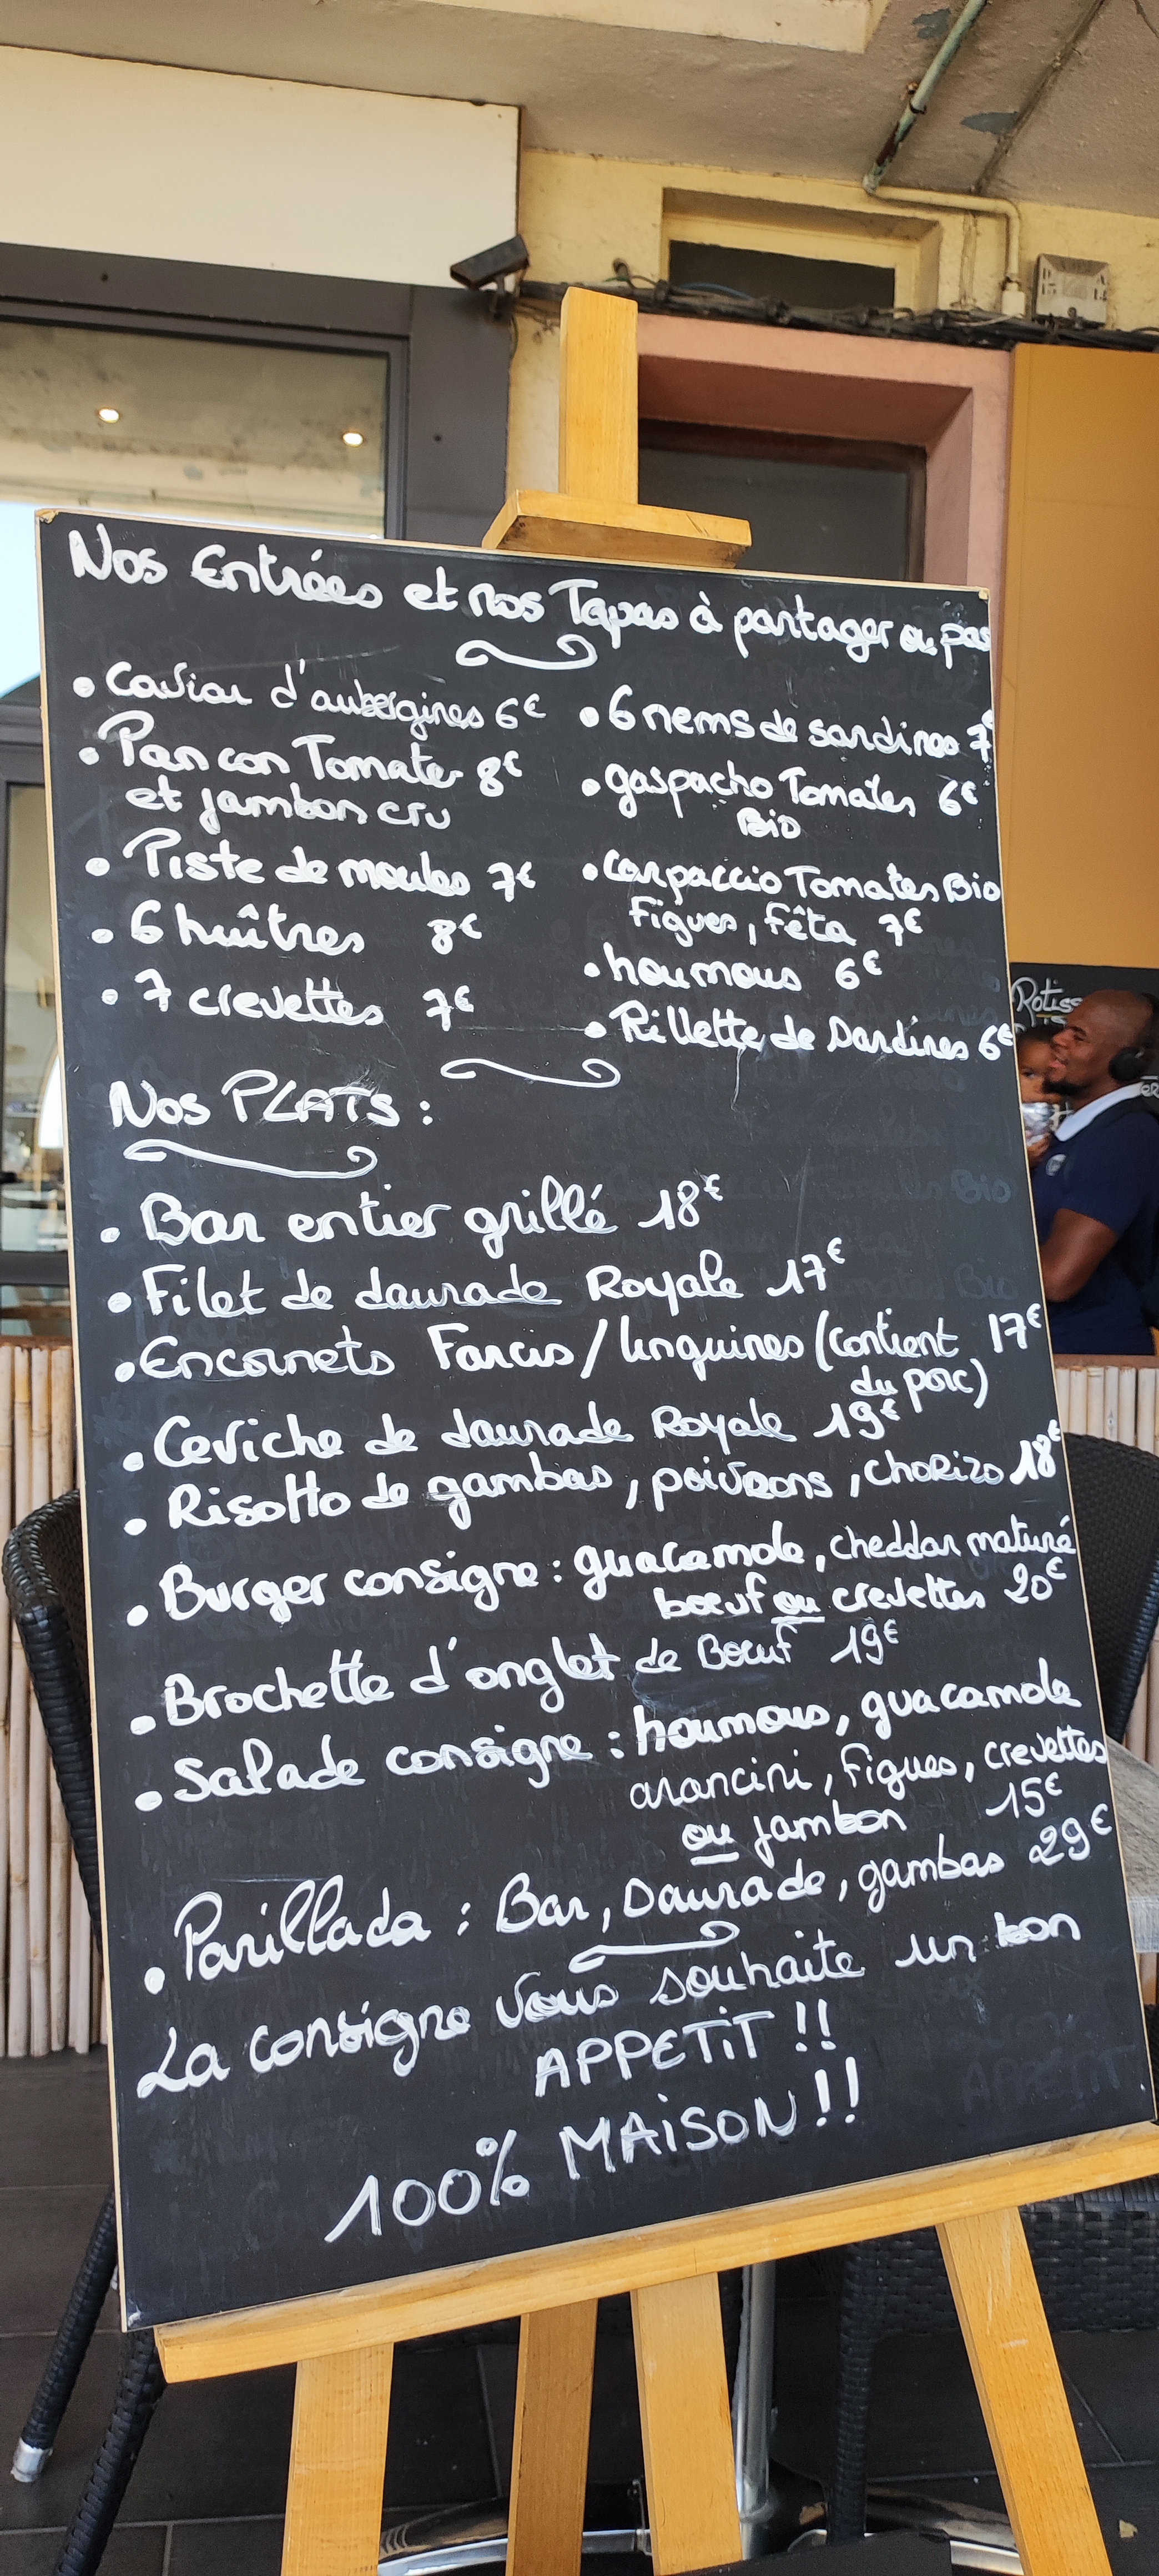 Nos Entrées et nos Tapas à partager ou pas
• Caviar d'aubergines 6€
• Pan con Tomates 8€
et jambon cru
• Piste de moules 7€
• 6 huîtres 8€
• 7 crevettes 7€
• 6 nems de sardines 7€
• gaspacho Tomates 6€
Bio
• Carpaccio Tomates Bio
Figues, Fêta 7€
• houmous 6€
• Rillette de Sardines 6€
Nos PLATS :
• Bar entier grillé 18€
• Filet de daurade Royale 17€
• Encornets Farcis / linguines (contient 17€
du porc)
• Ceviche de daurade Royale 19€
• Risotto de gambas, poivrons, CHORIZO 18€
• Burger consigne : guacamole, cheddar maturé
boeuf ou crevettes 20€
• Brochette d'onglet de Boeuf 19€
• Salade consigne : houmous, guacamole
arancini, figues, crevettes
ou jambon 15€
• Parillada : Bar, Daurade, gambas 29€
La consigne vous souhaite un bon
APPETIT !!
100% MAISON !!
Rotiss